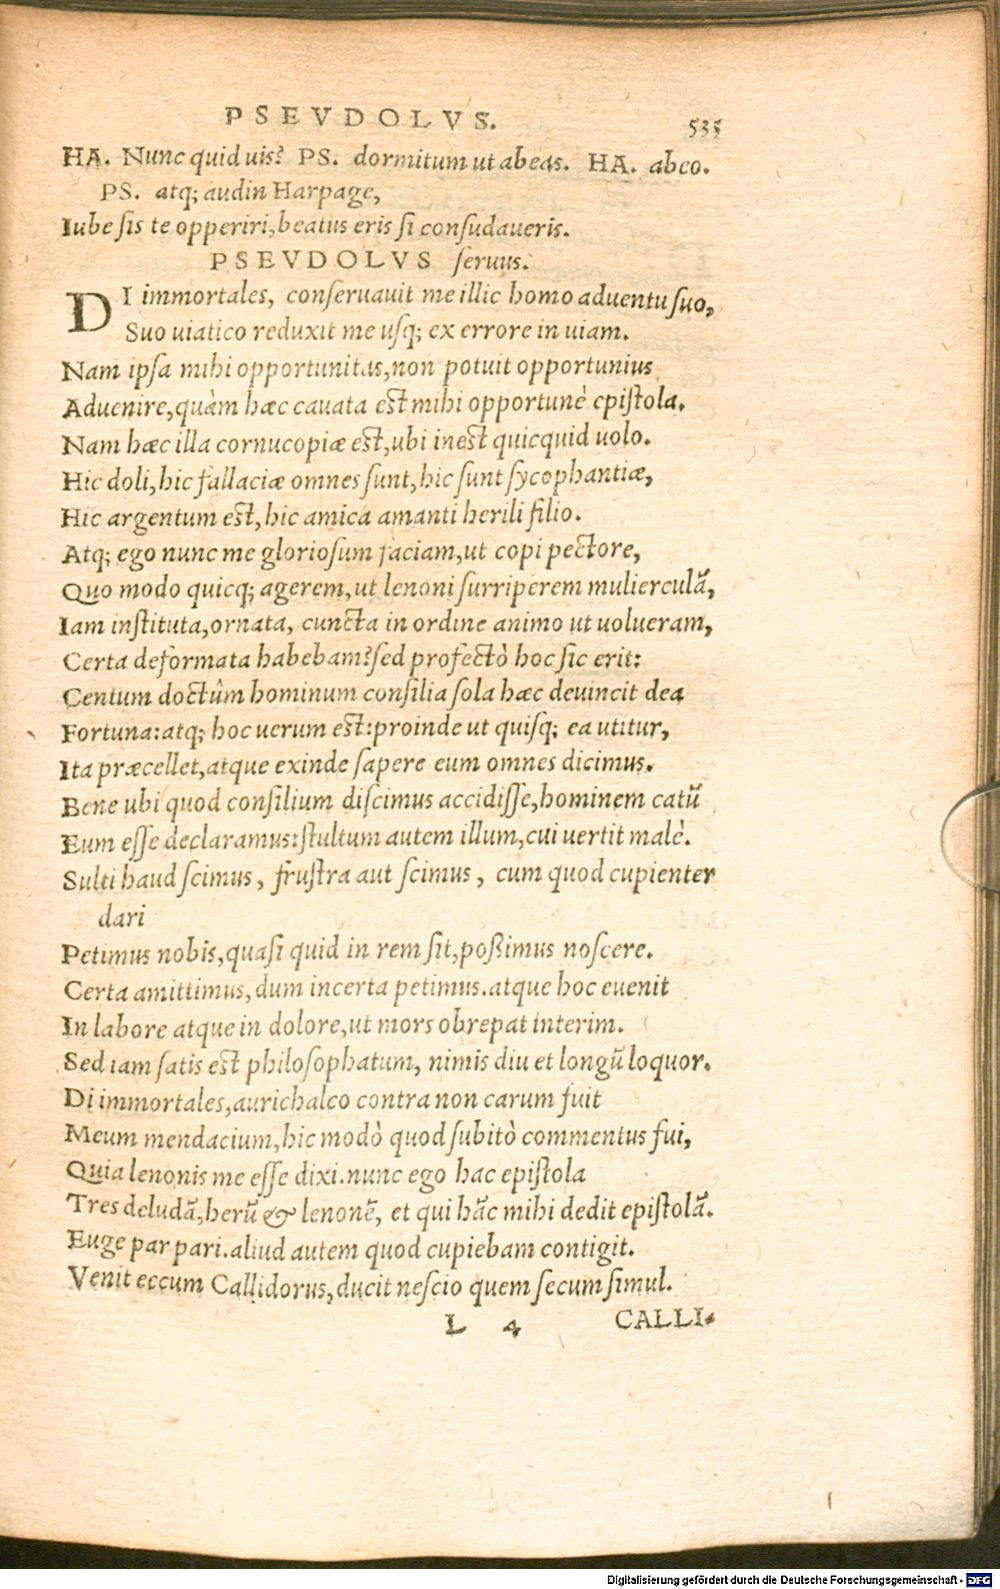 PSEVDOLVS. 535
HA. Nunc quid uis? PS. dormitum ut abeas. HA. abeo.
PS. atq; audin Harpage,
Iube sis te opperiri, beatus eris si consudaueris.
PSEVDOLVS seruus.
DI immortales, conseruauit me illic homo aduentu suo,
Suo uiatico reduxit me usq; ex errore in uiam.
Nam ipsa mihi opportunitas, non potuit opportunius
Aduenire, quàm hæc cauata est mihi opportunè epistola.
Nam hæc illa cornucopiæ est, ubi inest quicquid uolo.
Hic doli, hic fallaciæ omnes sunt, hic sunt sycophantiæ,
Hic argentum est, hic amica amanti herili filio.
Atq; ego nunc me gloriosum faciam, ut copi pectore,
Quo modo quicq; agerem, ut lenoni surriperem mulierculã,
Iam instituta, ornata, cuncta in ordine animo ut uolueram,
Certa deformata habebam? sed profectò hoc sic erit:
Centum doctûm hominum consilia sola hæc deuincit dea
Fortuna: atq; hoc uerum est: proinde ut quisq; ea utitur,
Ita præcellet, atque exinde sapere eum omnes dicimus.
Bene ubi quod consilium discimus accidisse, hominem catũ
Eum esse declaramus: stultum autem illum, cui uertit malè.
Sulti haud scimus, frustra aut scimus, cum quod cupienter
dari
Petimus nobis, quasi quid in rem sit, poßimus noscere.
Certa amittimus, dum incerta petimus. atque hoc euenit
In labore atque in dolore, ut mors obrepat interim.
Sed iam satis est philosophatum, nimis diu et longũ loquor.
Di immortales, aurichalco contra non carum fuit
Meum mendacium, hic modò quod subitò commentus fui,
Quia lenonis me esse dixi. nunc ego hac epistola
Tres deludã, herũ & lenonẽ, et qui hãc mihi dedit epistolã.
Euge par pari. aliud autem quod cupiebam contigit.
Venit eccum Callidorus, ducit nescio quem secum simul.
L 4 CALLI-
Digitalisierung gefördert durch die Deutsche Forschungsgemeinschaft - DFG